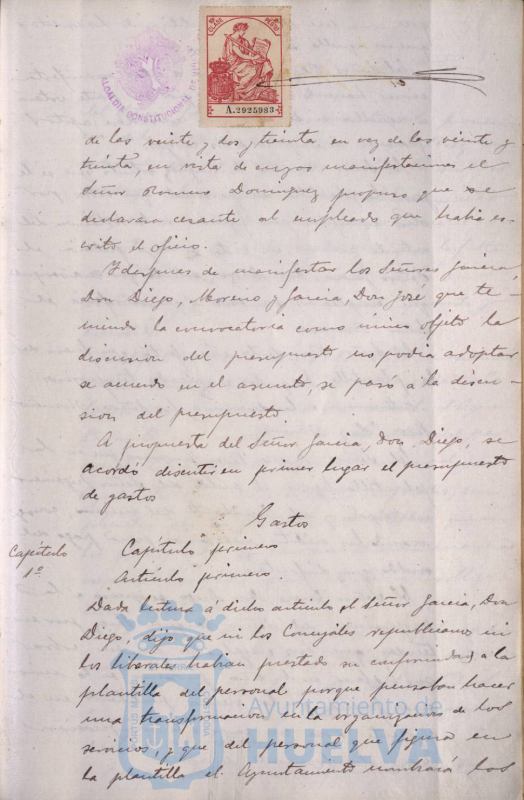 CLASE
A.2925983
ALCALDIA CONSTITUCIONAL DE
de las veinte y dos y treinta en vez de las veinte y
treinta, en vista de cuyas manifestaciones el
Señor Romero Dominguez propuso que se
declarara cesante al empleado que habia es-
crito el oficio.
Y despues de manifestar los Señores Garcia,
Don Diego, Moreno y Garcia, Don José que te-
niendo la convocatoria como único objeto la
discusion del presupuesto no podia adoptar
se acuerdo en el asunto, se pasó á la discu-
sion del presupuesto.
A propuesta del Señor Garcia, Don Diego, se
acordó discutir en primer lugar el presupuesto
de gastos
Gastos
Capitulo 1º
Capitulo primero
Articulo primero.
Dada lectura á dicho articulo el Señor Garcia, Don
Diego, dijo que ni los Concejales republicanos ni
los liberales habian prestado su conformidad á la
plantilla del personal porque pensaban hacer
una transformacion en la organizacion de los
servicios, y que del personal que figura en
la plantilla el Ayuntamiento nombrará los
Ayuntamiento de
HUELVA